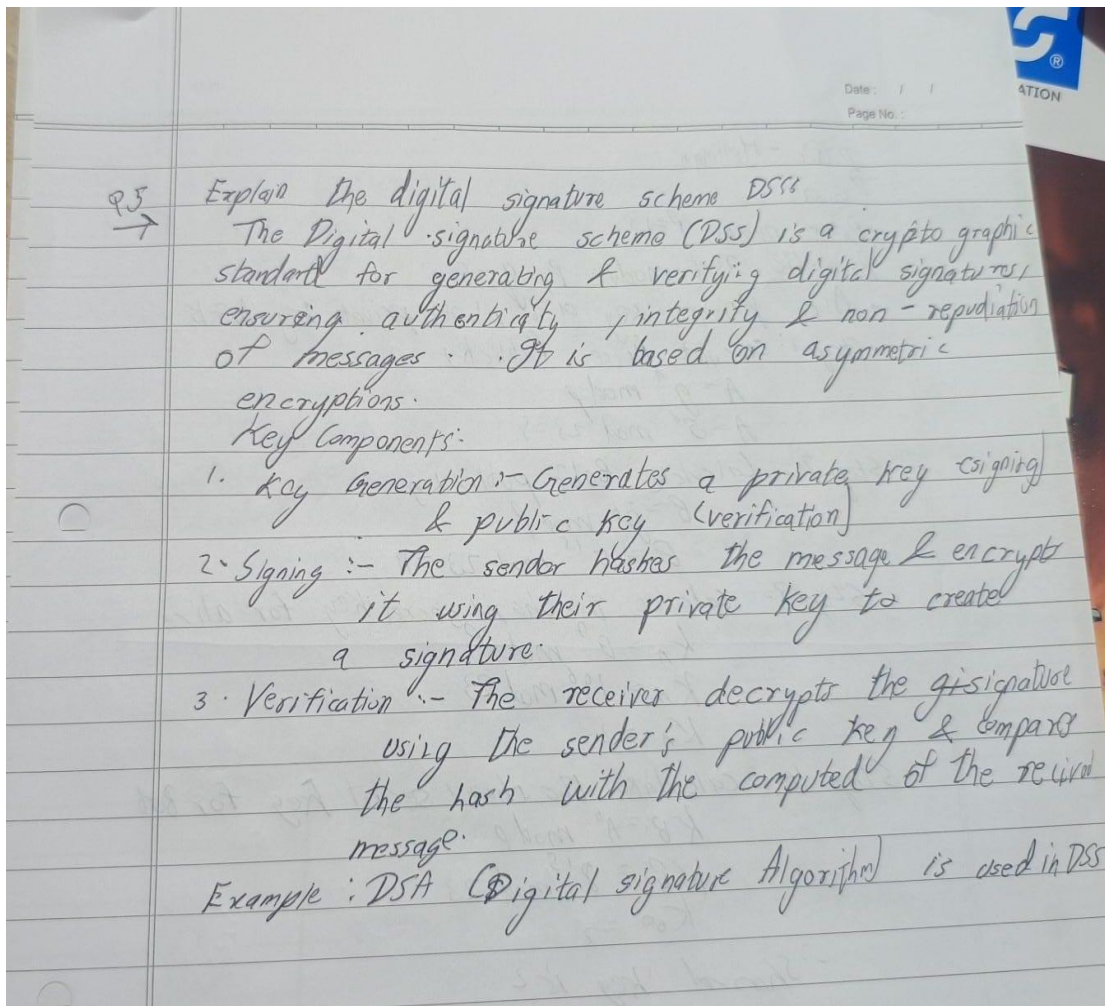 ®
ATION
Date : / /
Page No. :
Q5 Explain the digital signature scheme DSS
→ The Digital signature scheme (DSS) is a crypto graphic
standard for generating & verifying digital signatures,
ensuring authenticity, integrity & non-repudiation
of messages. It is based on asymmetric
encryptions.
Key Components:-
1. Key Generation :- Generates a private key (signing)
& public key (verification)
2. Signing :- The sender hashes the message & encrypts
it using their private key to create
a signature.
3. Verification :- The receiver decrypts the signature
using the sender's public key & compars
the hash with the computed of the recived
message.
Example : DSA (Digital signature Algorithm) is used in DSS